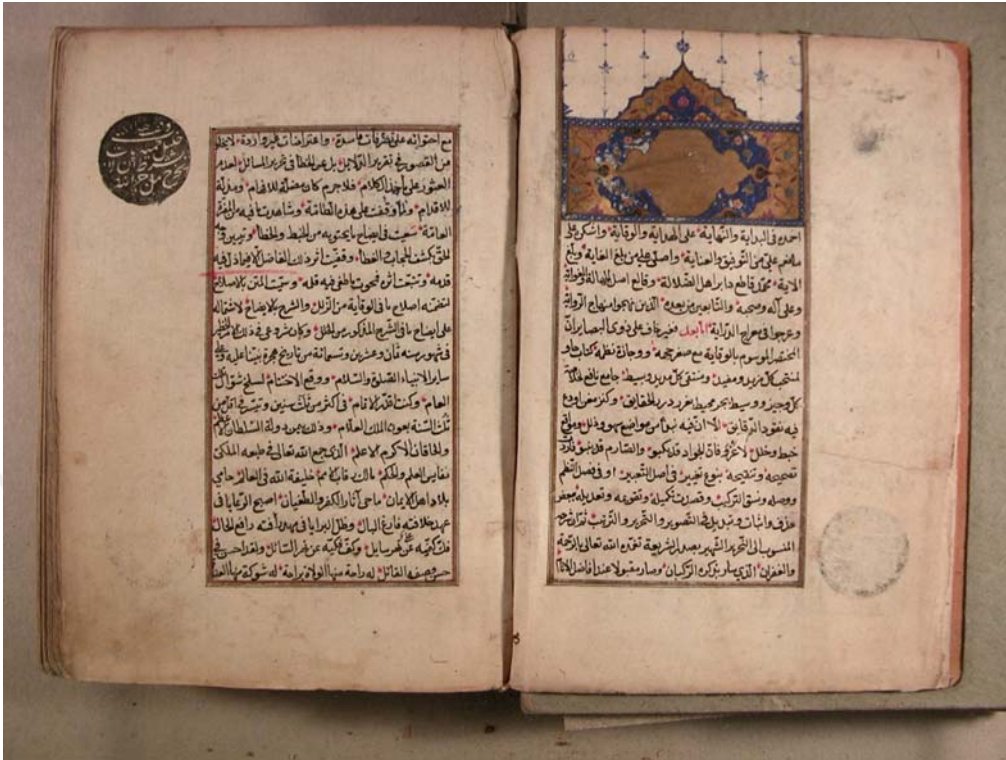 احمده في البداية والنهاية على الهداية والوقاية واشكره على
ما انعم علي من التوفيق والعناية واصلي على من بلغ الغاية وبلغ
الاية محمد قاطع دابر اهل الضلالة وقالع اصل الجهالة والغواية
وعلى آله وصحبه والتابعين من بعده الذين نهجوا منهاج الرواية
وعرجوا في معراج الدراية اما بعد فغير خاف على ذوي البصاير ان
المختصر الموسوم بالوقاية مع صغر حجمه ووجازة نظمه كتاب حاو
لمنتخب كل مزيد ومفيد ومنتقى كل مديد وبسيط جامع نافع
كل وجيز ووسيط بحر محيط بغرر درر الحقايق وكنز مغن اودع
فيه نقود الدقايق الا ان فيه نبذا من مواضع سهو وزلل ومواقع
خبط وخلل لا غرو فان الجواد قد يكبو والصارم قد ينبو فاردت
تصحيحه وتنقيحه بنوع تغيير في اصل التعبير او في فصل النظم
ووصله ونسق التركيب وقصدت تكميله وتقويمه وتعديله ببعض
حذف واثبات وتبديل في التصوير والتحرير والترتيب ثم ان شرحه
المنسوب الى النحرير الشهير بصدر الشريعة تغمده الله تعالى بالرحمة
والغفران الذي سار بذكره الركبان وصار مقبولا عند افاضل الانام
مع احتوائه على تصرفات فاسدة واعتراضات غير واردة لا يخلو
من القصور في تقرير الدلايل بل عن الخطا في تحرير المسائل لعدم
العثور على ما خذ الكلام فلا جرم كان مضلة للافهام ومزلة
للاقدام ولما وقفت على هذه الطامة وشاهدت ما فيه من المضرة
العامة سعيت في ايضاح ما يحتويه من الخبط والخطا وتبيين
بكشف الحجاب والغطا وقفيت اثر ذلك الفاضل الا فيما زل فيه
قدمه وتتبعت اثره فمحوت ما طغى فيه قلمه وسميت المتن بالاصلاح
لتضمنه اصلاح ما في الوقاية من الزلل والشرح بالايضاح لاشتماله
على ايضاح ما في الشرح المذكور من الخلل وكان شروعي في ذلك
في شهور سنة ثمان وعشرين وتسعمائة من تاريخ هجرة نبينا عليه وعلى
سائر الانبياء الصلوة والسلام ووقع الاختتام لسلخ شوال ذلك
العام وكنت اقدر الاتمام في اكثر من ثلث سنين وتيسر في اقل من
ثلث السنة بعون الملك العلام وذلك من دولة السلطان
والخاقان الاكرم الاعلم الذي جمع الله تعالى في طبعه الملكي
نفايس العلم والحكم مالك رقاب الامم خليفة الله في العالم حامي
بلاد اهل الايمان ماحي آثار الكفر والطغيان اصبح الرعايا في
عهد خلافته فارغ البال وظل البرايا في مهد رأفته رافع الحال
فك كفيه عن نهر سايل وكف فكيه عن نهر السائل ولقد احسن في
حسن وصفه القائل له راحة منها الولاة براحة له شوكة منها